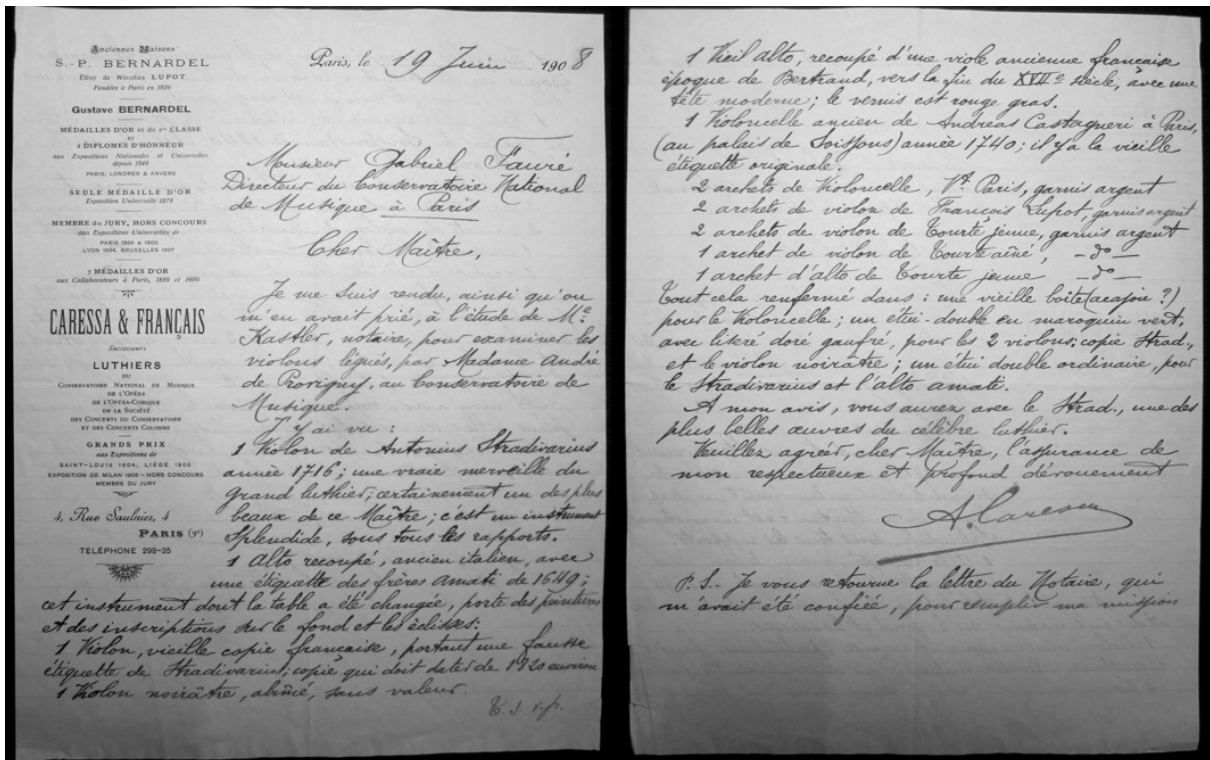 Anciennes Maisons
S.-P. BERNARDEL
Élève de Nicolas LUPOT
Fondées à Paris en 1826
Gustave BERNARDEL
MÉDAILLES D'OR et de 1re CLASSE
ET
4 DIPLOMES D'HONNEUR
aux Expositions Nationales et Universelles
depuis 1849
PARIS, LONDRES & ANVERS
SEULE MÉDAILLE D'OR
Exposition Universelle 1878
MEMBRE du JURY, HORS CONCOURS
aux Expositions Universelles de
PARIS 1889 & 1900
LYON 1894, BRUXELLES 1897
7 MÉDAILLES D'OR
aux Collaborateurs à Paris, 1889 et 1900
CARESSA & FRANÇAIS
Successeurs
LUTHIERS
DU
CONSERVATOIRE NATIONAL DE MUSIQUE
DE L'OPÉRA
DE L'OPÉRA-COMIQUE
DE LA SOCIÉTÉ
DES CONCERTS DU CONSERVATOIRE
ET DES CONCERTS COLONNE
GRANDS PRIX
aux Expositions de
SAINT-LOUIS 1904, LIÈGE 1905
EXPOSITION DE MILAN 1906 - HORS CONCOURS
MEMBRE DU JURY
4, Rue Saulnier, 4
PARIS (9e)
TÉLÉPHONE 298-35
Paris, le 19 Juin 1908
Monsieur Gabriel Fauré
Directeur du Conservatoire National
de Musique à Paris
Cher Maître,
Je me suis rendu, ainsi qu'on
m'en avait prié, à l'étude de Me
Kastler, notaire, pour examiner les
violons légués, par Madame André
de Provigny, au Conservatoire de
Musique.
J'y ai vu :
1 Violon de Antonius Stradivarius
année 1716 ; une vraie merveille du
grand luthier ; certainement un des plus
beaux de ce Maître ; c'est un instrument
splendide, sous tous les rapports.
1 Alto recoupé, ancien italien, avec
une étiquette des frères Amati de 1649 ;
cet instrument dont la table a été changée, porte des peintures
et des inscriptions sur le fond et les éclisses.
1 Violon, vieille copie française, portant une fausse
étiquette de Stradivarius ; copie qui doit dater de 1820 environ
1 Violon noirâtre, abîmé, sans valeur.
T. S. v. p.
1 Vieil alto, recoupé d'une viole ancienne française
époque de Bertrand, vers la fin du XVIIe siècle, avec une
tête moderne ; le vernis est rouge gras.
1 Violoncelle ancien de Andreas Castagneri à Paris,
(au palais de Soissons) année 1740 ; il y a la vieille
étiquette originale.
2 archets de Violoncelle, Vt Paris, garnis argent
2 archets de violon de François Lupot, garnis argent
2 archets de violon de Tourte jeune, garnis argent
1 archet de violon de Tourte aîné, — do —
1 archet d'alto de Tourte jeune — do —
Tout cela renfermé dans : une vieille boîte (acajou ?)
pour le Violoncelle ; un étui-double en maroquin vert,
avec liseré doré gaufré, pour les 2 violons, copie Strad.,
et le violon noirâtre ; un étui double ordinaire, pour
le Stradivarius et l'alto amati.
A mon avis, vous aurez avec le Strad., une des
plus belles œuvres du célèbre luthier.
Veuillez agréer, cher Maître, l'assurance de
mon respectueux et profond dévouement
A. Caressa
P.S.- Je vous retourne la lettre du Notaire, qui
m'avait été confiée, pour remplir ma mission